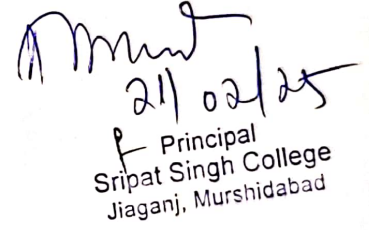 21/02/25
Principal
Sripat Singh College
Jiaganj, Murshidabad